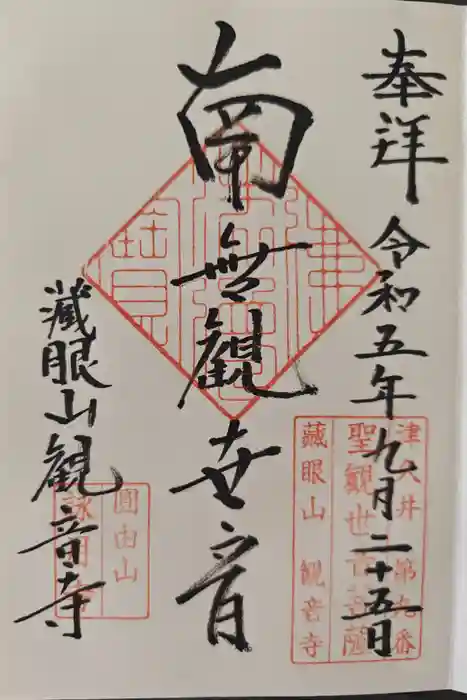 奉拝 令和五年九月二十五日
南無観世音
蔵眼山観音寺
津八井 第九番
聖観世音菩薩
蔵眼山 観音寺
圓由山